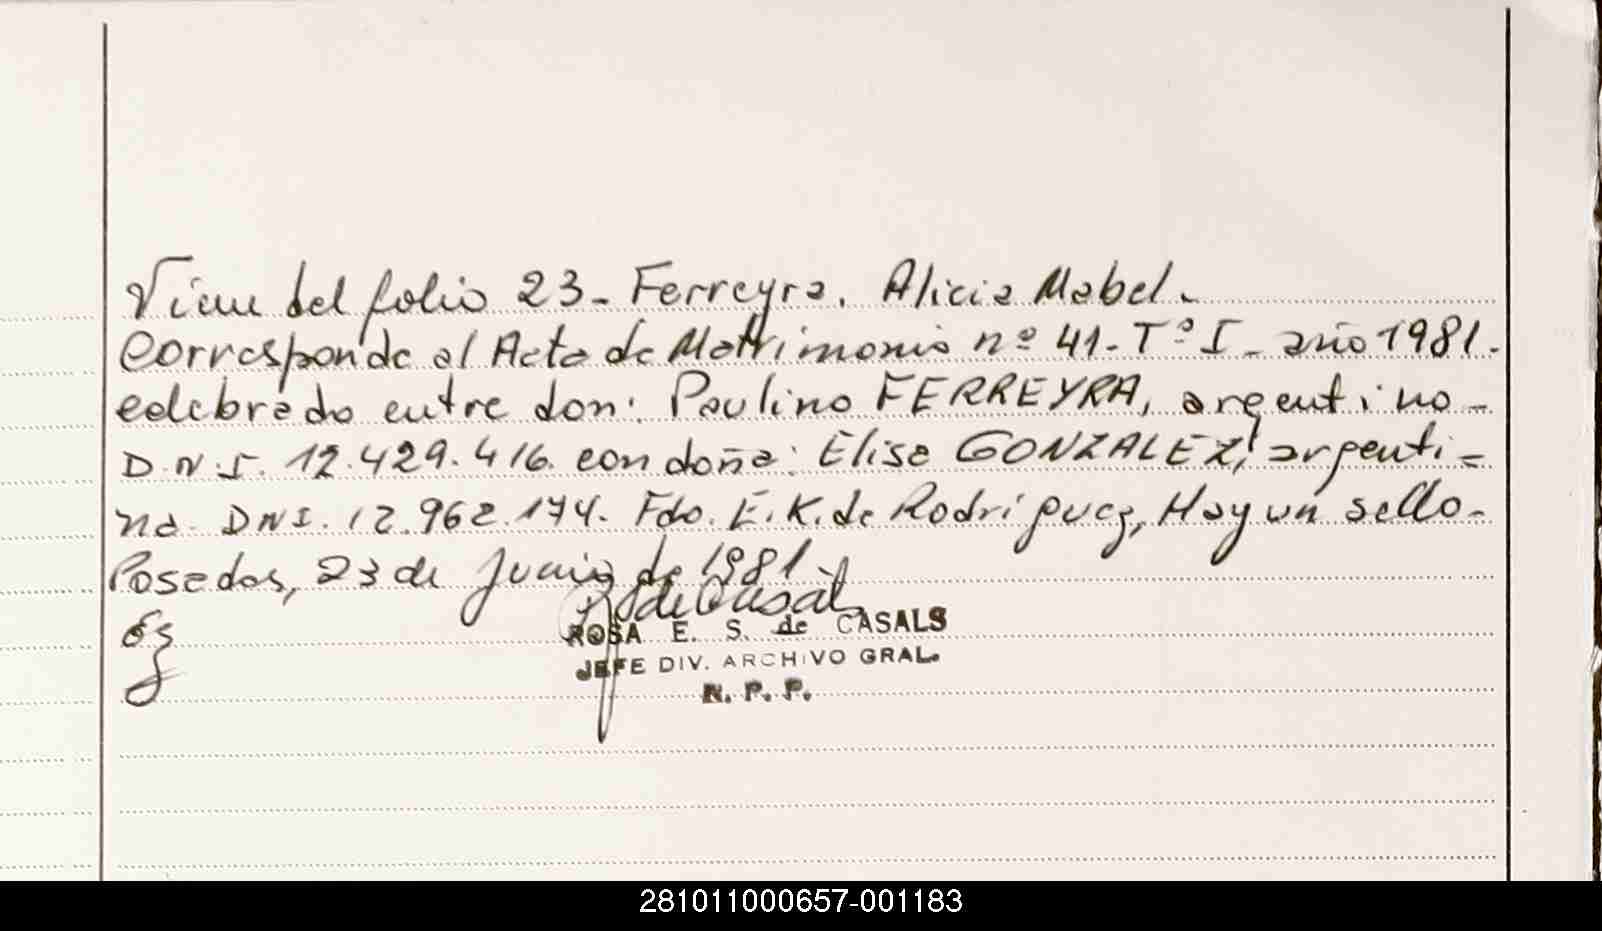 Viene del folio 23- Ferreyra. Alicia Mabel.
Corresponde al Acta de Matrimonio nº 41-Tº I- año 1981.
celebrado entre don: Paulino FERREYRA, argentino-
D.N.I. 12.429.416. con doña: Elisa GONZALEZ, argenti-
na. DNI. 12.962.174. Fdo. E.K. de Rodríguez, Hay un sello-
Posadas, 23 de Junio de 1981.
ROSA E. S. de CASALS
JEFE DIV. ARCHIVO GRAL.
R. P. P.
281011000657-001183